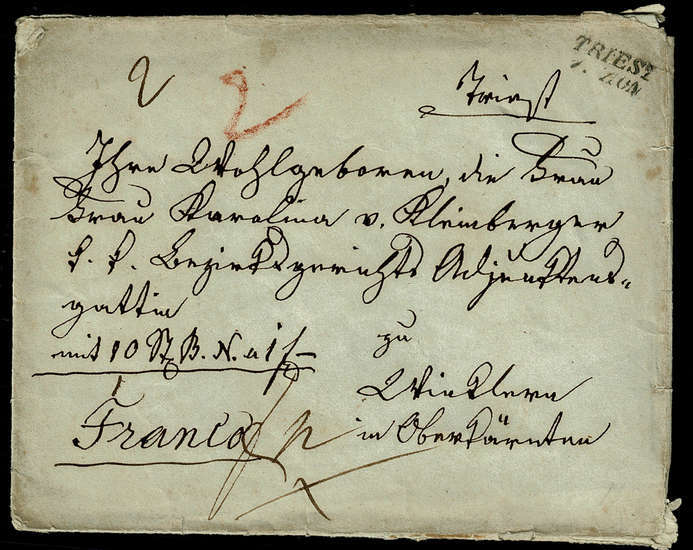 TRIEST
7. JUN
2 2
Triest
Ihro Wohlgeboren, die Frau
Frau Karolina v. Kleinberger
k. k. Bezirksgerichts Adjunktens-
gattin
mit 10 St. B. N. a 1 f
zu
Winklern
Franco
in Oberkärnten